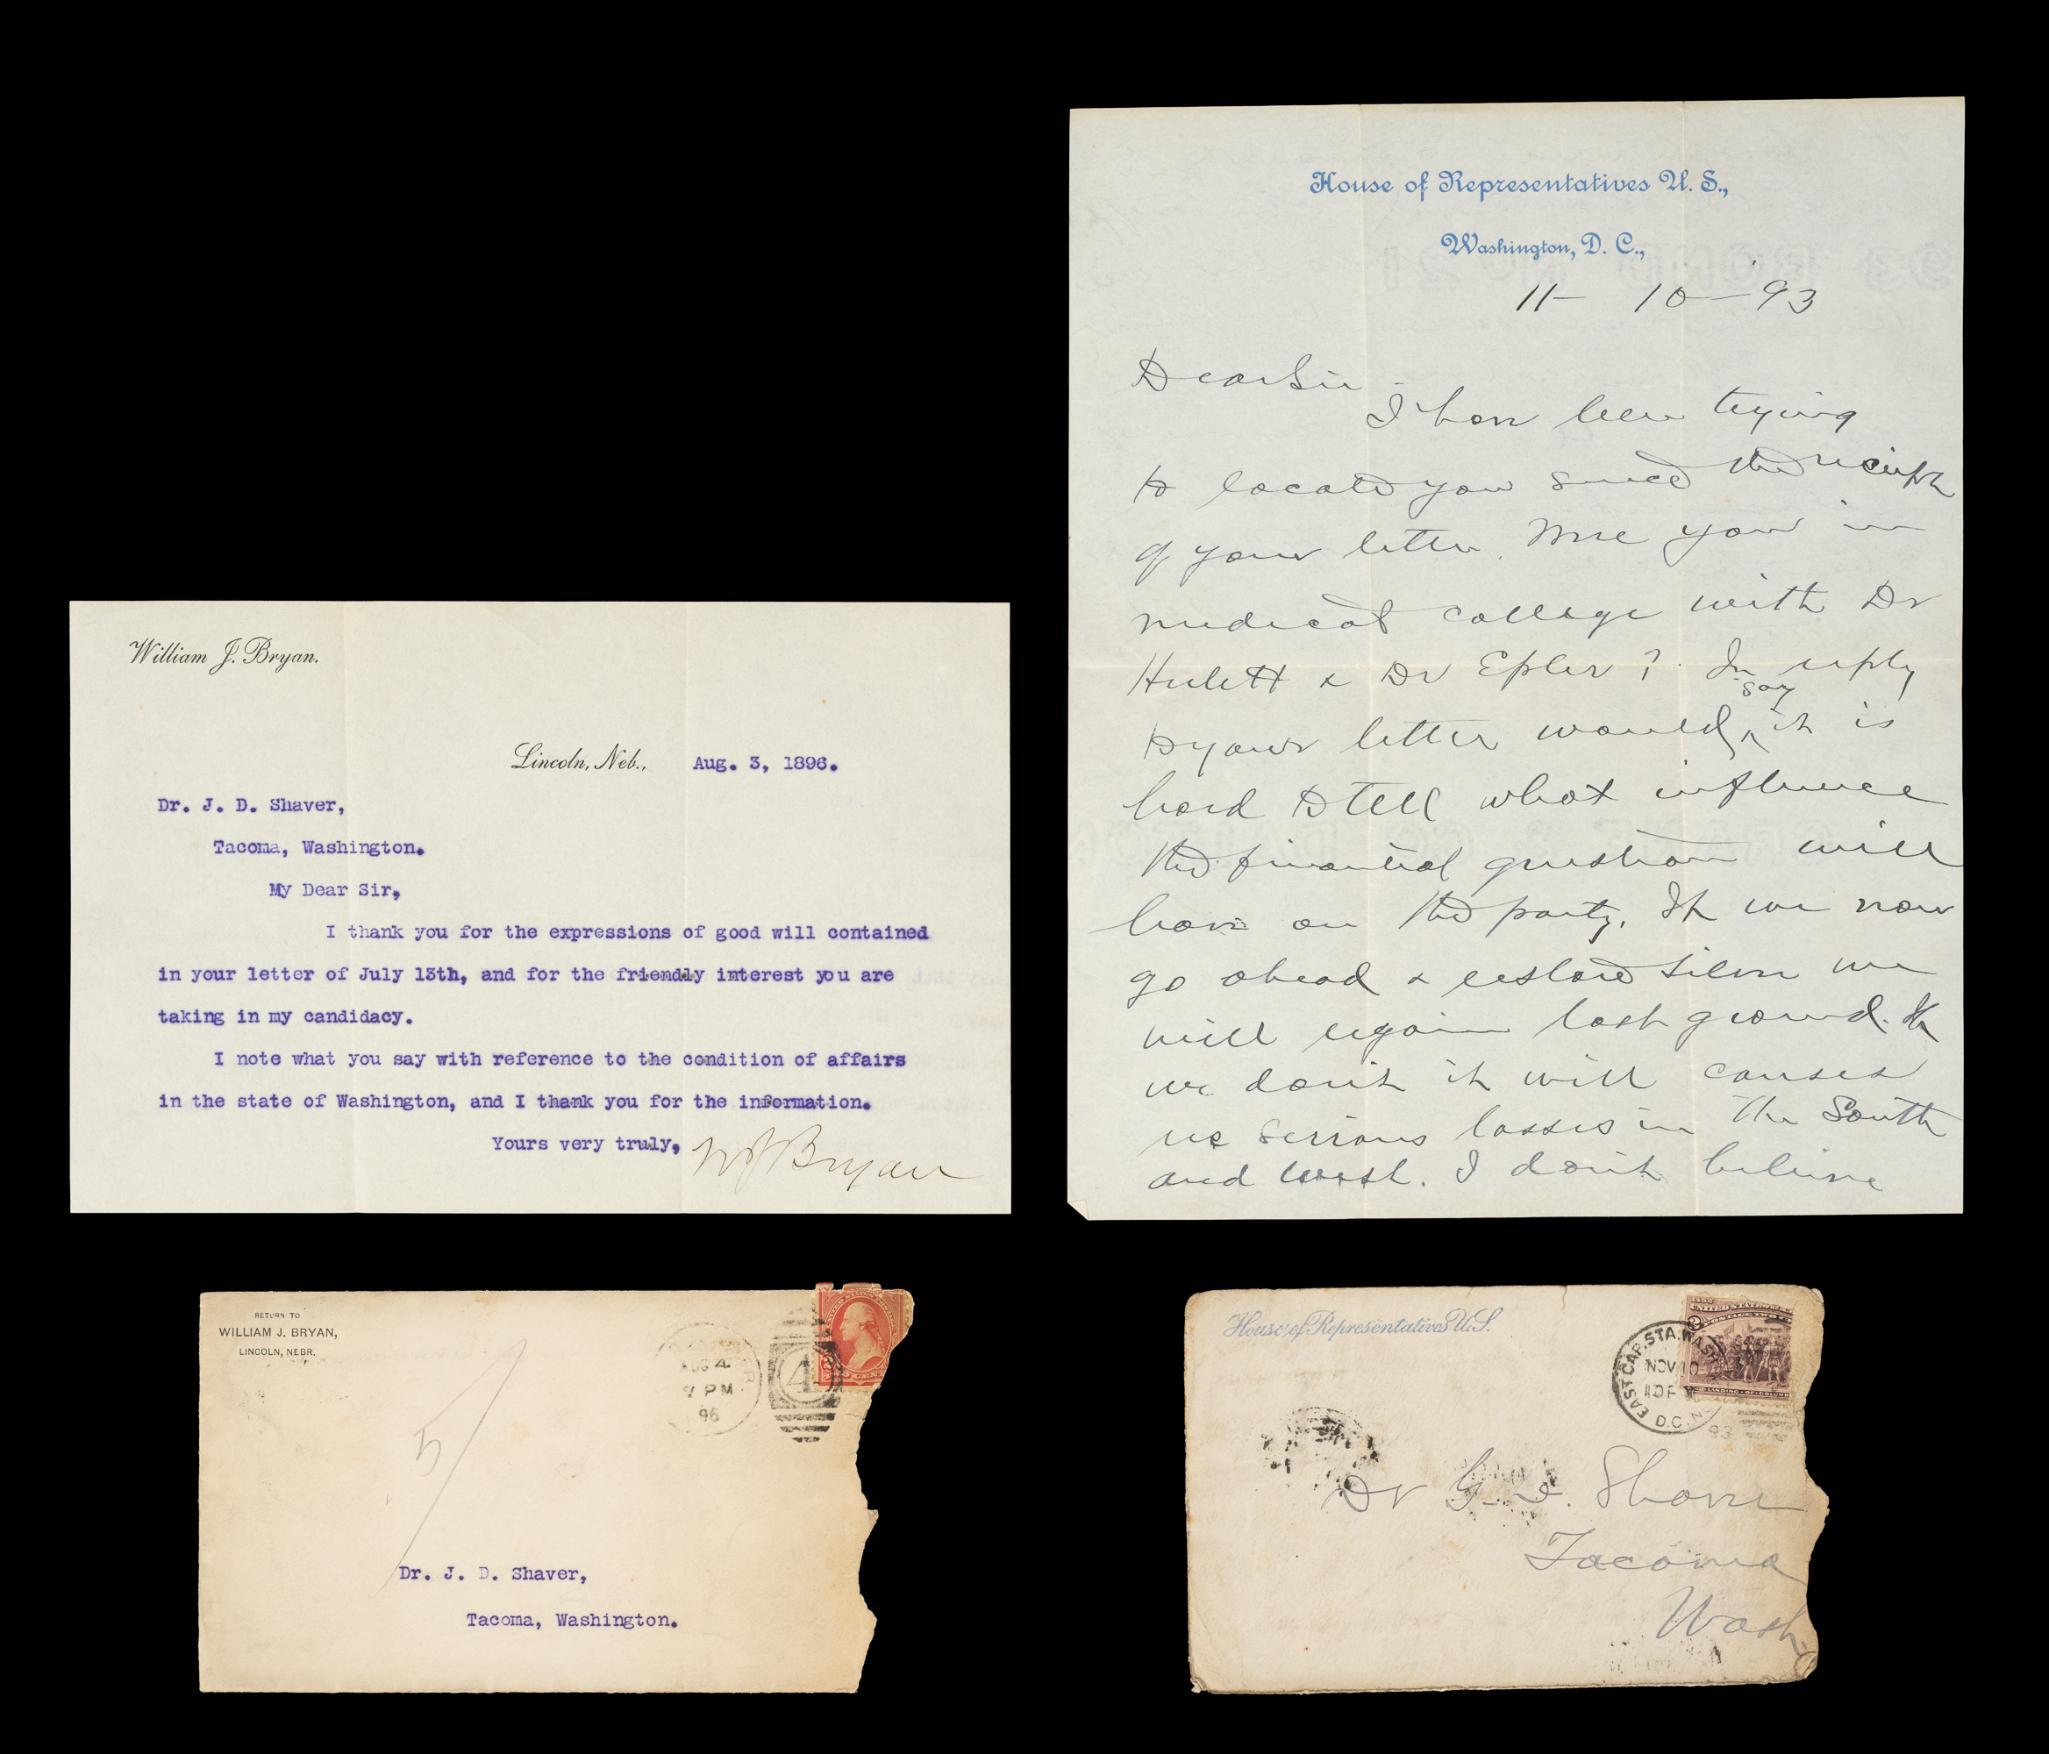 William J. Bryan.
Lincoln, Neb., Aug. 3, 1896.
Dr. J. D. Shaver,
Tacoma, Washington.
My Dear Sir,
I thank you for the expressions of good will contained
in your letter of July 13th, and for the friendly interest you are
taking in my candidacy.
I note what you say with reference to the condition of affairs
in the state of Washington, and I thank you for the information.
Yours very truly, WJ Bryan
House of Representatives U. S.,
Washington, D. C.,
11 - 10 - 93
Dear Sir
I have been trying
to locate you since the receipt
of your letter. Were you in
medical college with Dr
Hulett & Dr Epler? In reply
say
to your letter would ^ it is
hard to tell what influence
the financial question will
have on the party. If we now
go ahead & restore silver we
will regain lost ground. If
we don't it will cause
us serious losses in the South
and West. I don't believe
RETURN TO
WILLIAM J. BRYAN,
LINCOLN, NEBR.
AUG 4
7 PM
96
4
5
Dr. J. D. Shaver,
Tacoma, Washington.
House of Representatives U.S.
EAST CAP. STA. WASH
NOV 10
D.C.
93
UNITED STATES
LANDING OF COLUM
Dr J. D. Shaver
Tacoma
Wash